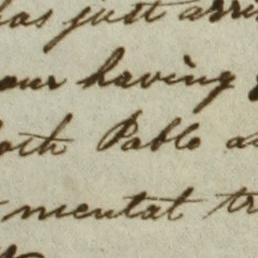 has just arri
our having
both Pablo a
mental tr